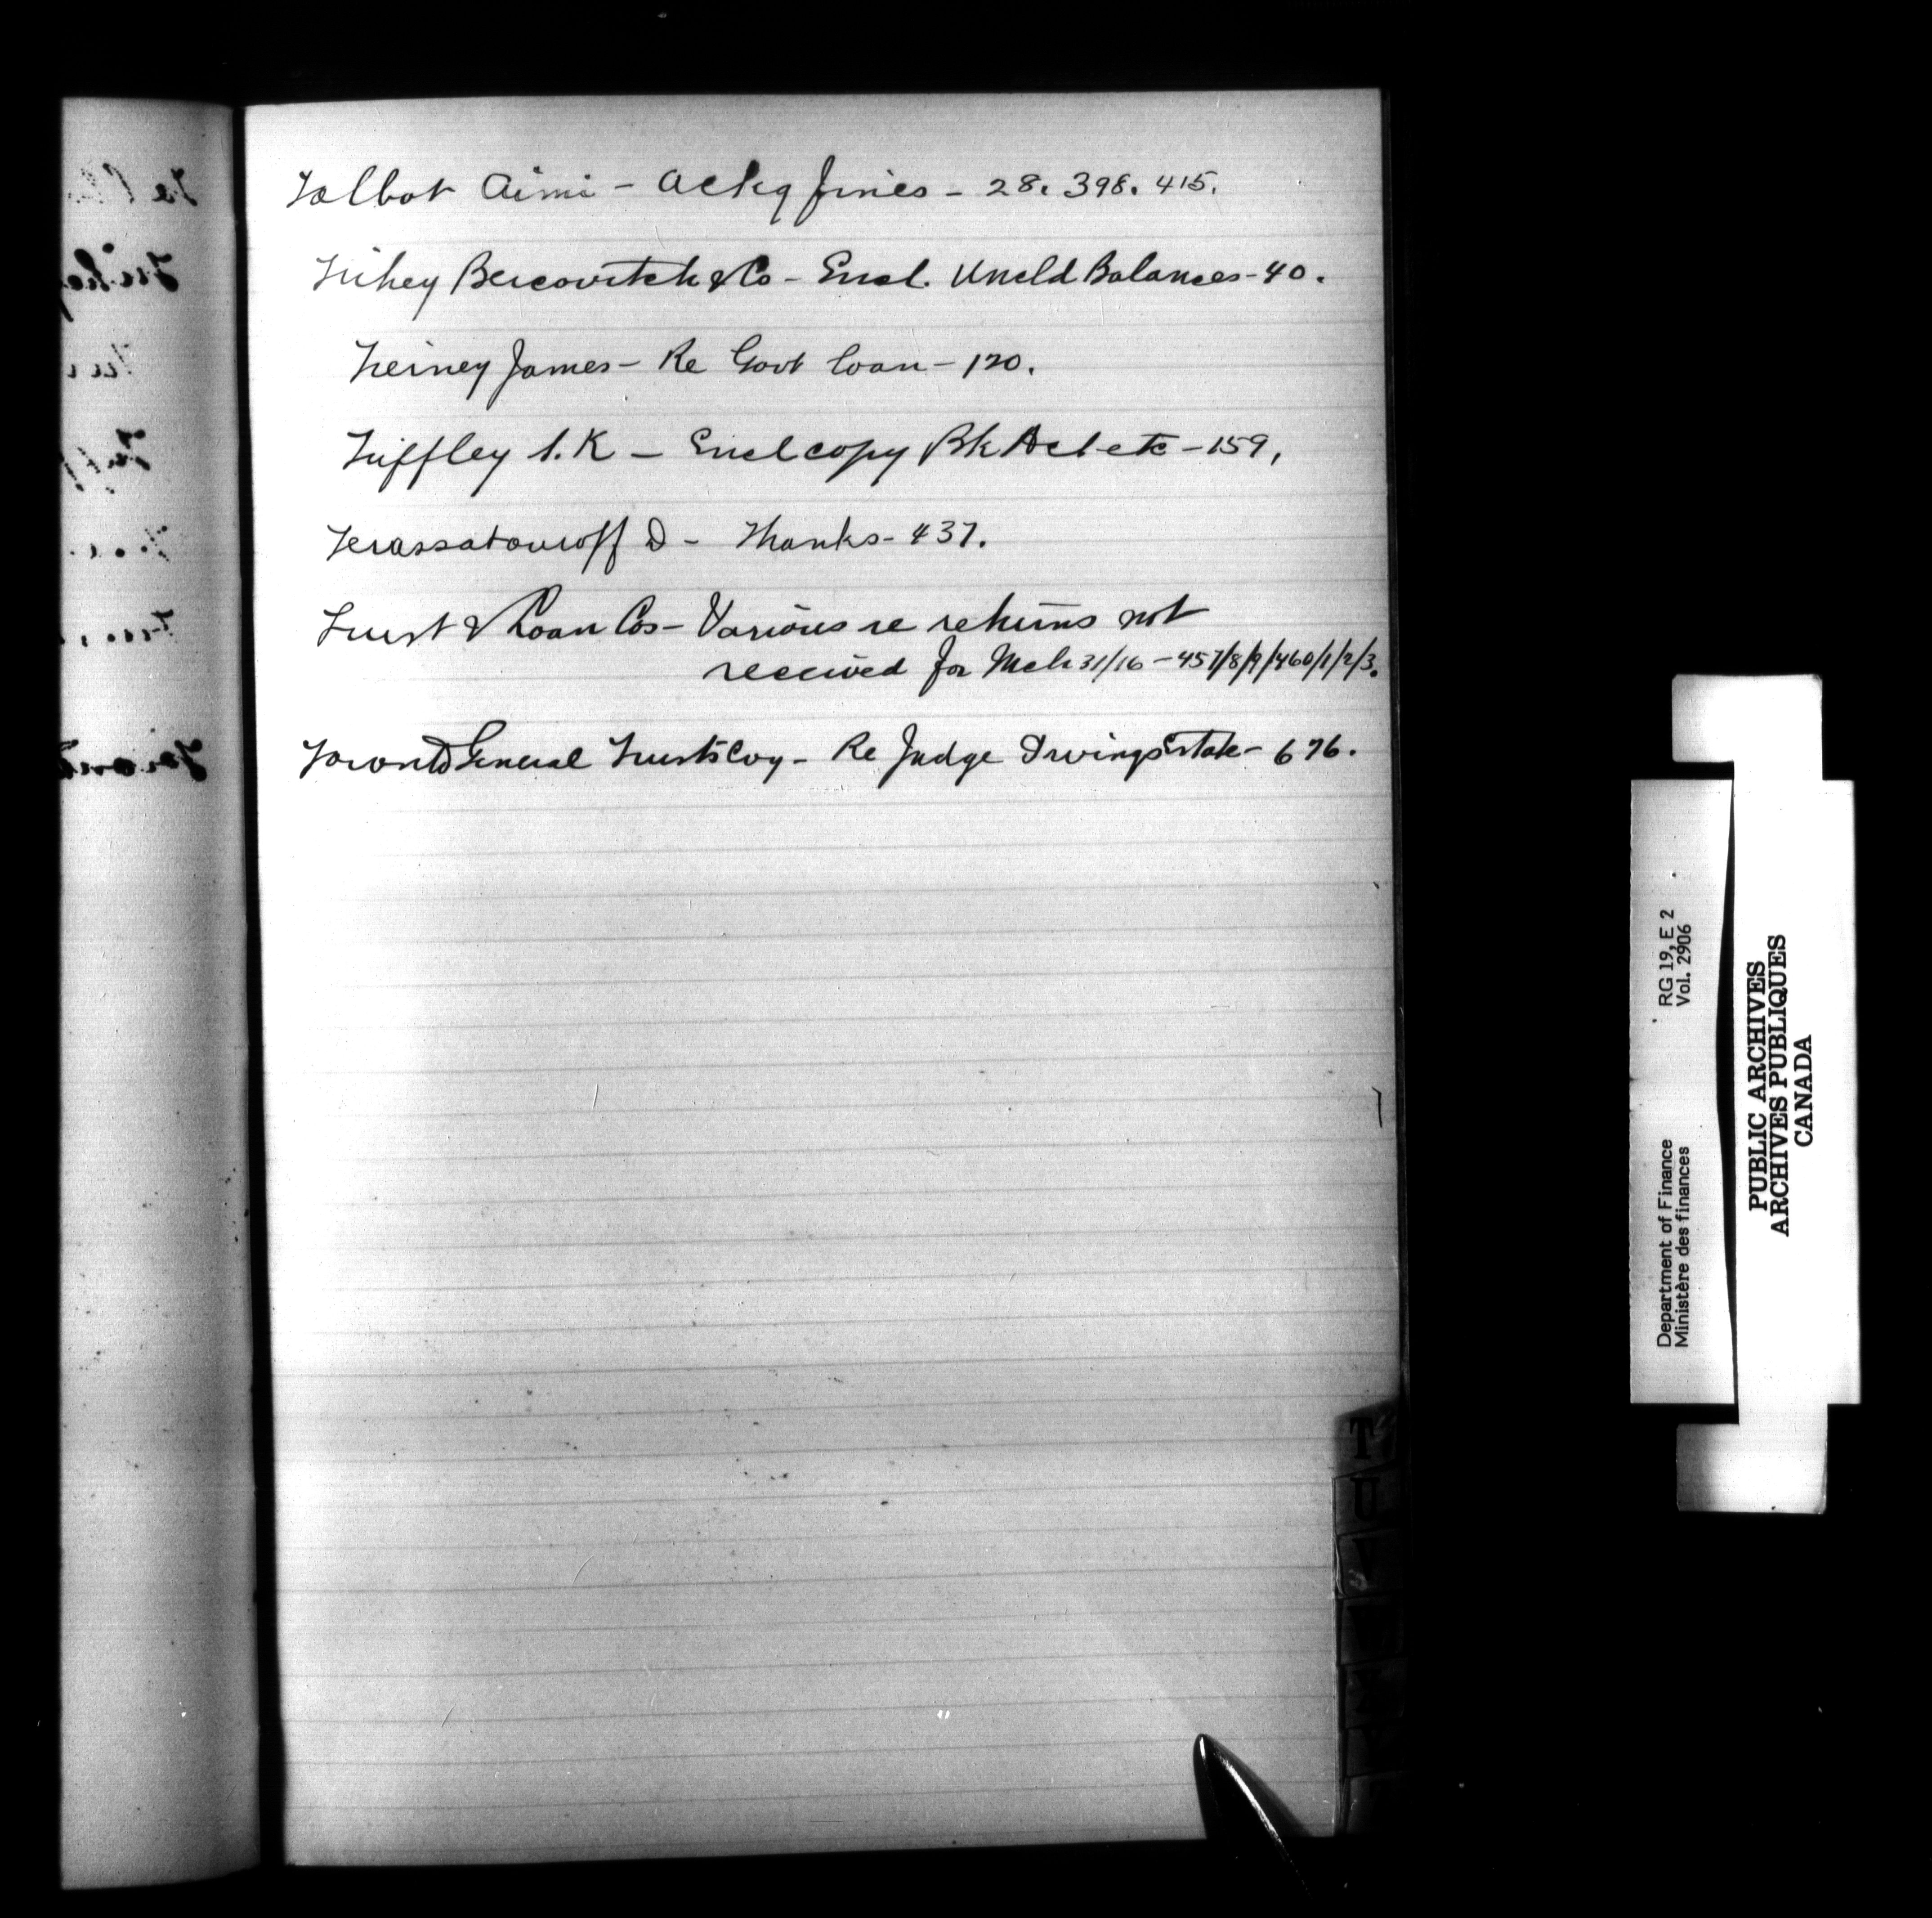 Talbot Aimi - Ackg fines - 28. 398. 415.
Trihey Bercovitch & Co - Encl. Uncld Balances - 40.
Treiney James - Re Govt loan - 120.
Tuffley S. K - Encl copy Bk Act etc - 159,
Terassatouroff D - Thanks - 437.
Trust & Loan Cos - Various re returns not
received for Mch 31/16 - 457/8/9/460/1/2/3.
Toronto General Trusts Coy - Re Judge Irvings Estate - 676.
T
U
V
RG 19, E 2
Vol. 2906
Department of Finance
Ministère des finances
PUBLIC ARCHIVES
ARCHIVES PUBLIQUES
CANADA